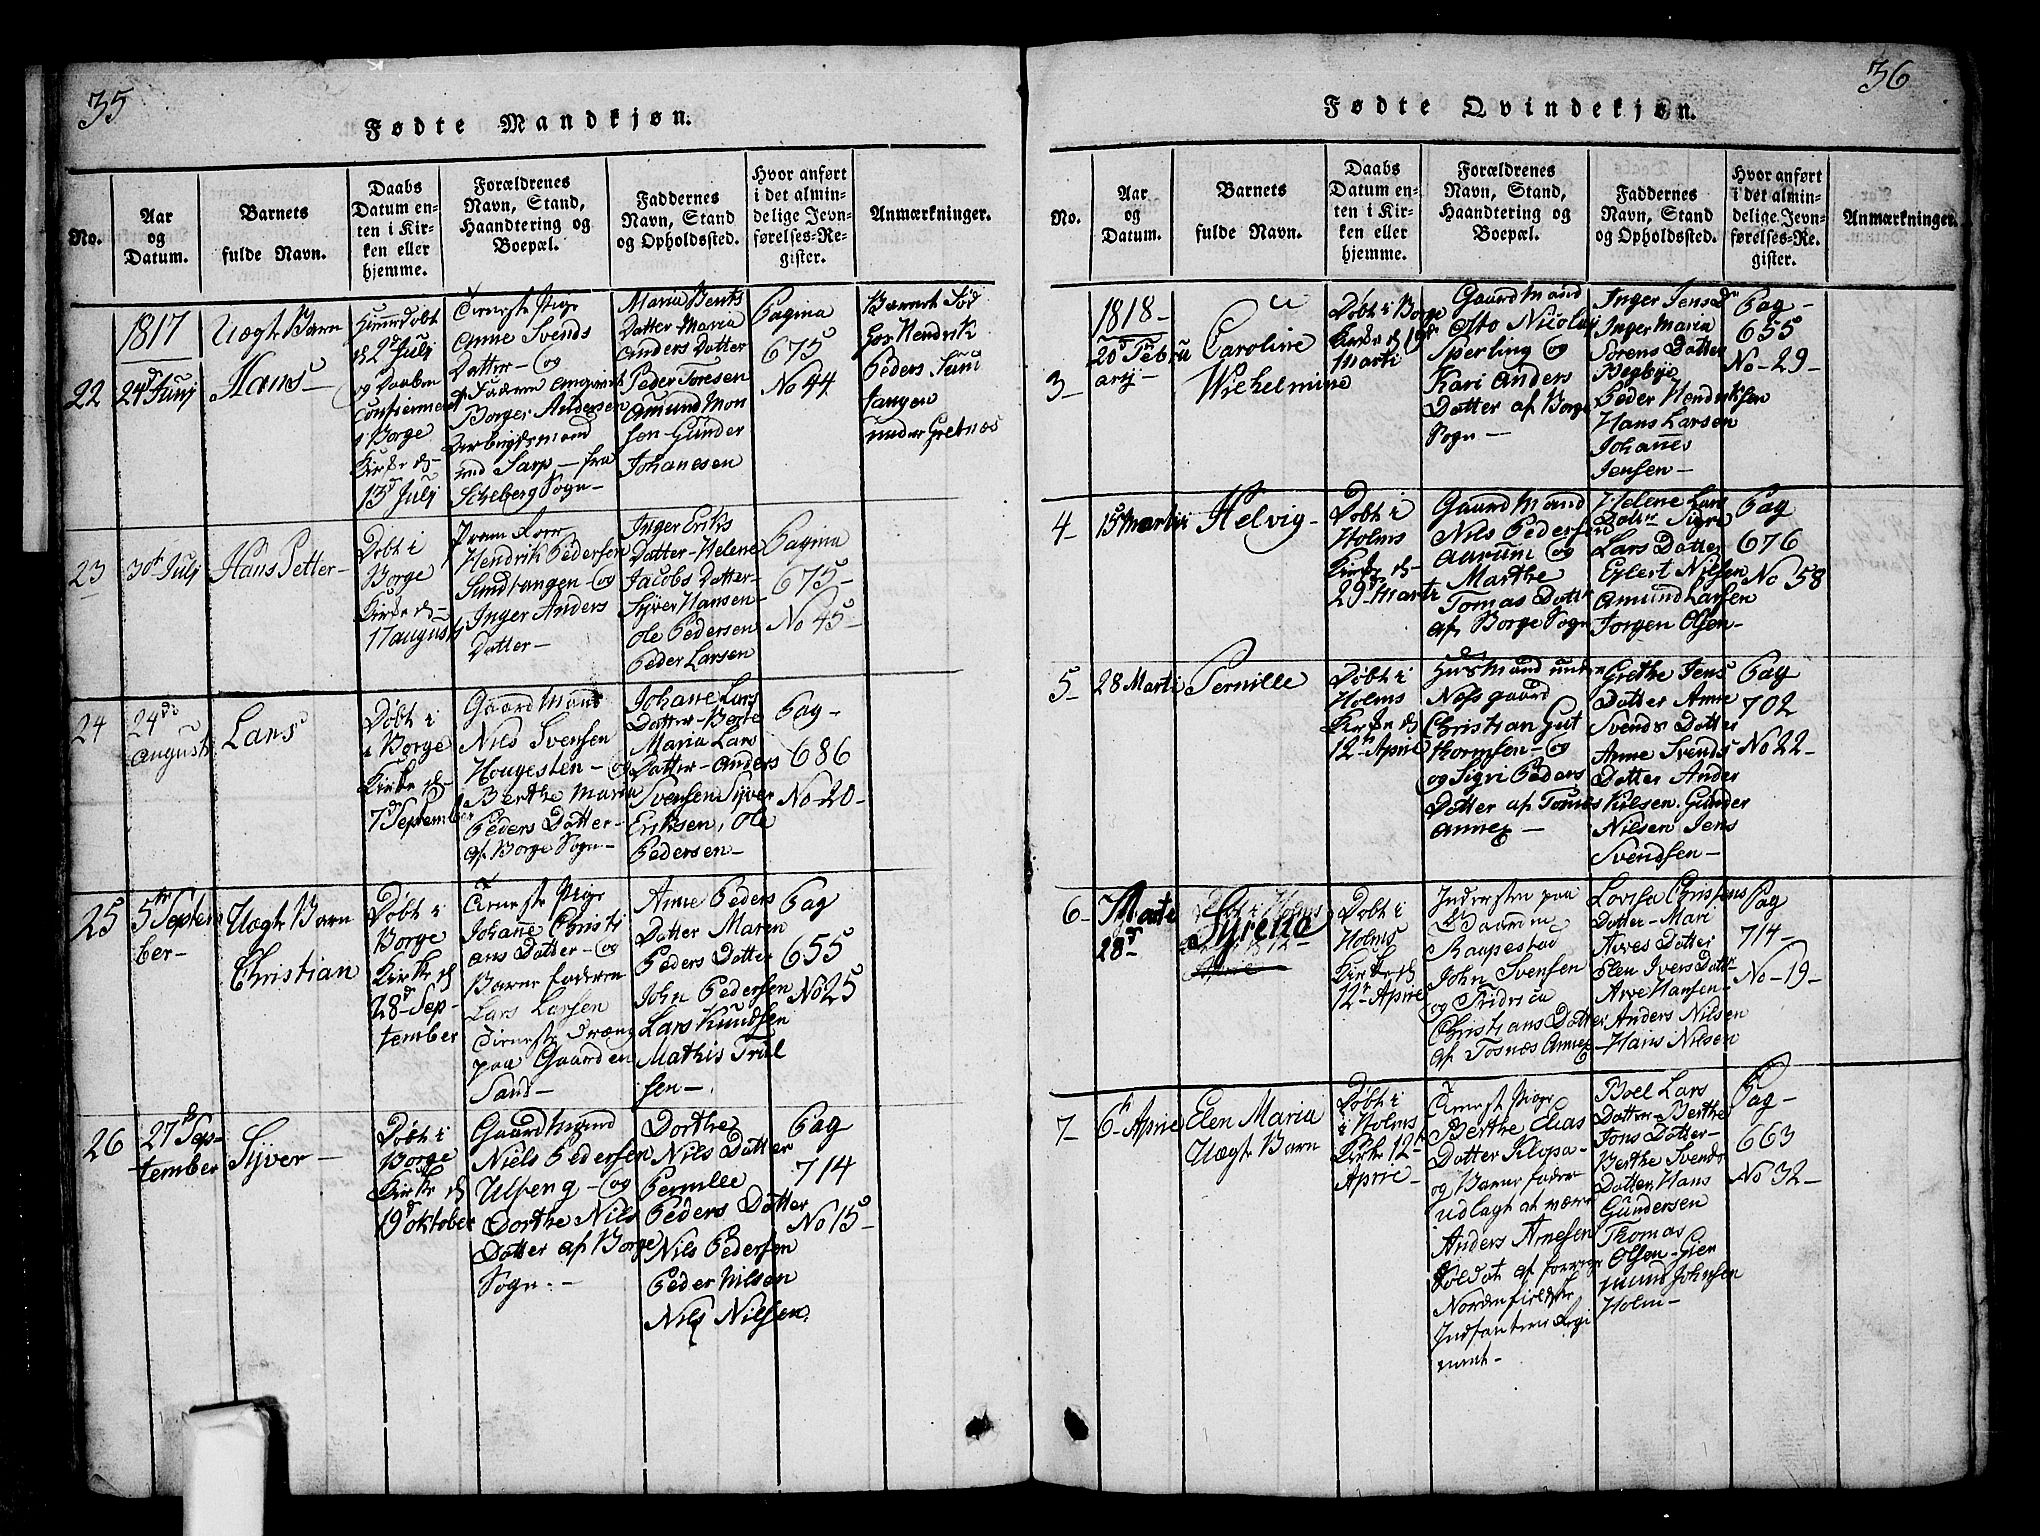 35
Fødte Mandkjøn.
No.
Aar
og
Datum.
Barnets
fulde Navn.
Daabs
Datum en-
ten i Kir-
ken eller
hjemme.
Forældrenes
Navn, Stand,
Haandtering og
Boepæl.
Faddernes
Navn, Stand
og Opholdssted.
Hvor anført
i det almin-
delige Jevn-
førelses-Re-
gister.
Anmærkninger.
22
1817
24de Junj
Uægte Barn
Hans
Hiemdøbt
d 2de Julj
og Daaben
Confiermert
i Borge
Kirke d
13de Julj
Tieneste Pige
Anne Svends
Datter og
Borger Andersen
ved Sarp fra
Scheberg Sogn
Maria Bents
Datter Maria
Anders Datter
Peder Toresen
Amund Mon
sen Gunder
Johanesen
Pagina
675
No 44
Barnet Fød
hos Hendrik
Peders Sund
tangen
under Gretnæs
23
30te Julj
Hans Petter
Døbt i
Borge
Kirke d
17 august
Hendrik Pedersen
Sundtangen og
Inger Anders
Datter
Inger Eriks
Datter Helene
Jacobs Datter
Syver Hansen
Ole Pedersen
Peder Larsen
Pagina
675
No 45
24
24de
August
Lars
Døbt i
i Borge
Kirke d
7de September
Gaard Mand
Nils Svensen
Hougesten og
Berthe Maria
Peders Datter
af Borge Sogn
Johane Lars
Datter Borge
Maria Lars
Datter Anders
Svensen Syver
Eriksen, Ole
Pedersen
Pag
686
No 20
25
5te Septem
ber
Uægte Barn
Christian
Døbt i
Borge
Kirke d
28de Sep
tember
Tieneste Pige
Johane Christi
ans Datter og
Barne faderen
Lars Larsen
Tieneste Dreng
paa Gaarden
Sand
Anne Peders
Datter Maren
Peders Datter
John Pedersen
Lars Knudsen
Mathis Trul
sen
Pag
655
No 25
26
27de Sep
tember
Syver
Døbt i
Borge
Kirke d
19de oktober
Gaard Mand
Niels Pedersen
Ulseng og
Dorthe Nils
Datter af Borge
Sogn.
Dorthe
Nils Datter
Pernille
Peders Datter
Nils Pedersen
Peder Nilsen
Nils Nilsen
Pag
714
No 15
36
Fødte Qvindekjøn.
No.
Aar
og
Datum.
Barnets
fulde Navn.
Daabs
Datum en-
ten i Kir-
ken eller
hjemme.
Forældrenes
Navn, Stand,
Haandtering og
Boepæl.
Faddernes
Navn, Stand
og Opholdssted.
Hvor anført
i det almin-
delige Jevn-
førelses-Re-
gister.
Anmærkninger.
3
1818
20de Febru
arij
Caroline
Wiehelmine
Døbt i Borge
Kirke d 19de
Marti
Gaard Mand
Otto Nicolaj
Sperling og
Kari Anders
Datter af Borge
Sogn
Inger Jens Dr
Inger Maria
Sørens Datter
Begbye
Peder Hendriksen
Hans Larsen
Johanes
Jensen
Pag
655
No 29
4
15 Martii
Helvig
Døbt i
Holms
Kirke d
29 Marti
Gaard Mand
Nils Pedersen
Aarum og
Marthe
Tomas Dattr
af Borge Sogn
Helene Lars
Datter Sigre
Lars Datter
Eylert Nilsen
Amund Larsen
Jorgen Olsen
Pag
676
No 58
5
28 Marti
Pernille
Døbt i
Holms
Kirke d
12te Aprie
Huus Mand under
Næss gaard
Christian Gut
tormsen og
og Sigri Peders
Datter af Tosnes
Annex
Grethe Jens
Datter Anne
Svends Datter
Anne Svends
Datter Ander
Nilsen Gunder
Nilsen Jens
Svendsen
Pag
702
No 22
6
7 Marti
28de
Døbt i Holms
Syrena
Aprie
Døbt i
Holms
Kirke d
12te Aprie
Inderster paa
Gaarden
Raapestad
John Svensen
og Fridrica
Christians Datter
af Tosnæs Annex
Lovisa Christens
Datter Mari
Arves Datter
Elen Ivers Dattr
Arve Hansen
Anders Nilsen
Hans Nilsen
Pag
714
No 19
7
6te Aprie
Elen Maria
Uægte Barn
Døbt i
i Holms
Kirke 12te
Aprie
Tieneste Pige
Berthe Elias
Datter Klopa
og Barne fader
udlagt at være
Anders Arnesen
Soldat af forrige
Nordenfieldske
Indfanterie Regi
ment
Boel Lars
Datter Berthe
Jons Datter
Berthe Svends
Datter, Hans
Gundersen
Thomas
Olsen Gier
mund Johnsen
Holm
Pag
663
No 32